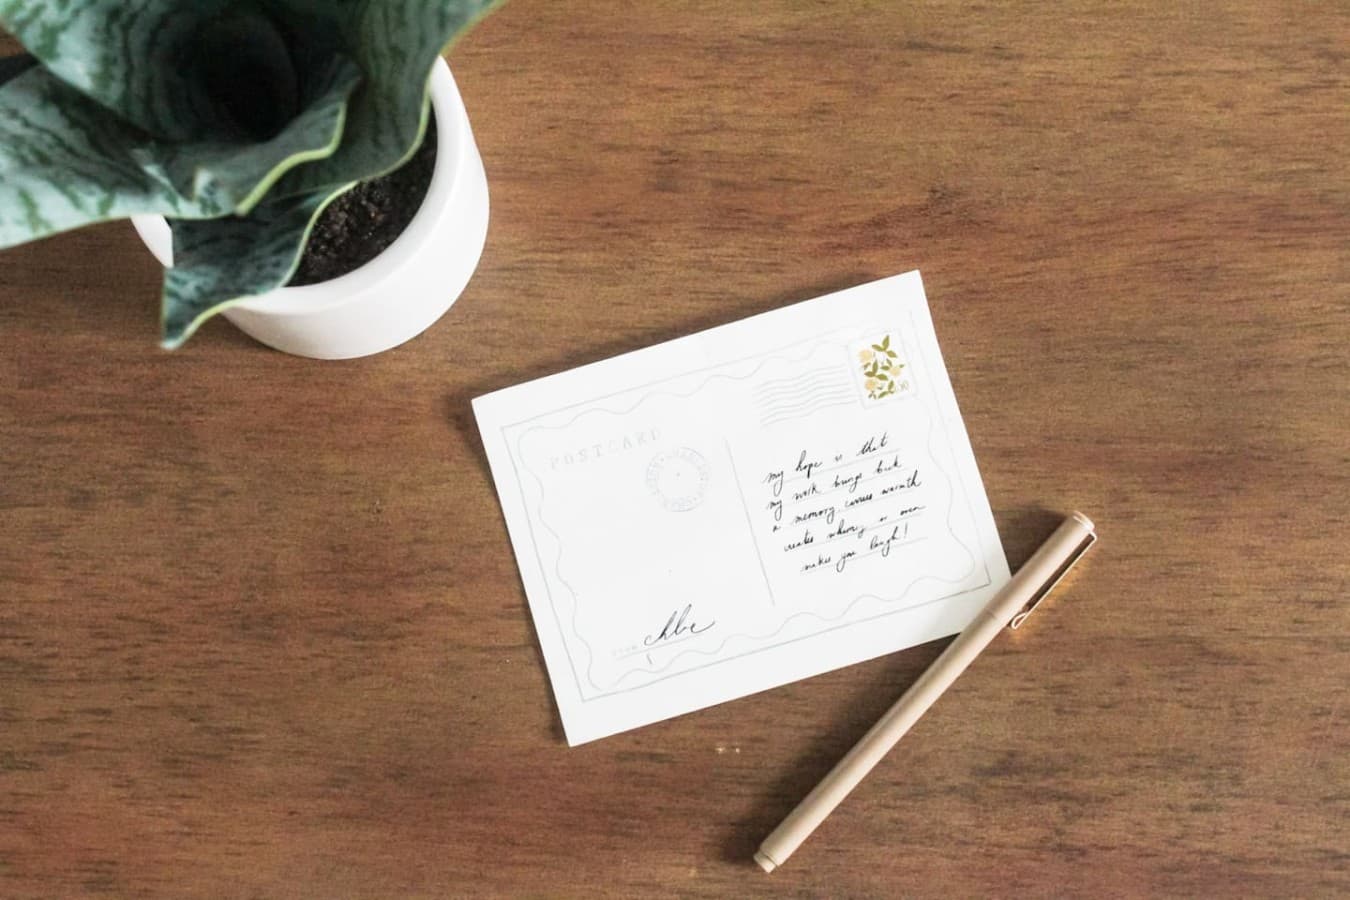 POSTCARD
my hope is that
my work brings back
a memory, carries warmth
creates whimsy or even
makes you laugh!
FROM chloe